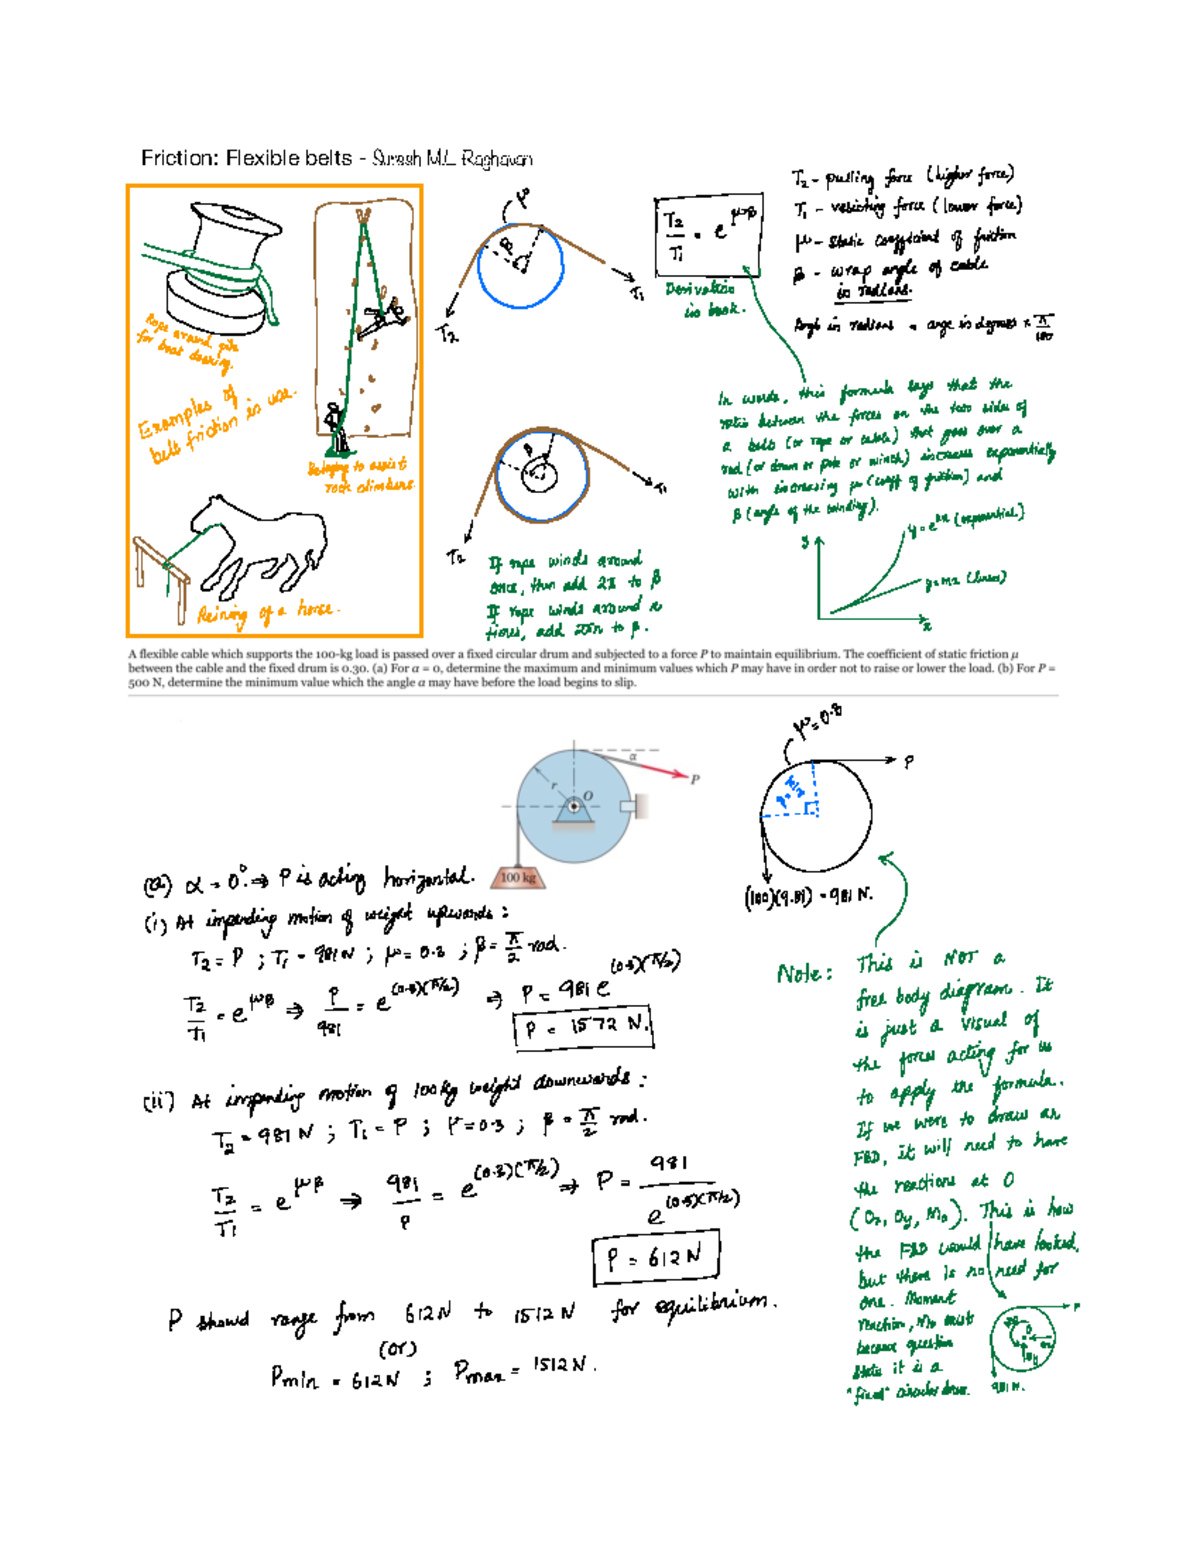 Friction: Flexible belts - Suresh M.L. Raghavan
Rope around pile
for boat docking.
Examples of
belt friction in use.
Belaying to assist
rock climbers.
Reining of a horse.
μ
β
T1
T2
T2/T1 = e^μβ
Derivation
in book.
T2 - pulling force (higher force)
T1 - resisting force (lower force)
μ - static coefficient of friction
β - wrap angle of cable
in radians.
Angle in radians = ange in degrees × π/180
In words, this formula says that the
ratio between the forces on the two sides of
a belt (or rope or cable) that goes over a
rod (or drum or pole or winch) increases exponentially
with increasing μ (coeff of friction) and
β (angle of the winding).
y
y = e^ax (exponential)
y=mx (linear)
x
β
T1
T2
If rope winds around
once, then add 2π to β
If rope winds around n
times, add 2πn to β.
A flexible cable which supports the 100-kg load is passed over a fixed circular drum and subjected to a force P to maintain equilibrium. The coefficient of static friction μ
between the cable and the fixed drum is 0.30. (a) For α = 0, determine the maximum and minimum values which P may have in order not to raise or lower the load. (b) For P =
500 N, determine the minimum value which the angle α may have before the load begins to slip.
α
P
r
O
100 kg
μ=0.3
P
β=π/2
(100)(9.81) = 981 N.
(a) α = 0°. ⇒ P is acting horizontal.
(i) At impending motion of weight upwards:
T2 = P ; T1 = 981N ; μ= 0.3 ; β= π/2 rad.
T2/T1 = e^μβ ⇒ P/981 = e^(0.3)(π/2) ⇒ P = 981 e^(0.3)(π/2)
P = 1572 N.
(ii) At impending motion of 100kg weight downwards:
T2 = 981 N ; T1 = P ; μ=0.3 ; β = π/2 rad.
T2/T1 = e^μβ ⇒ 981/P = e^(0.3)(π/2) ⇒ P = 981/e^(0.3)(π/2)
P = 612 N
P should range from 612N to 1512N for equilibrium.
(or)
Pmin = 612N ; Pmax = 1512N.
Note: This is NOT a
free body diagram. It
is just a visual of
the forces acting for us
to apply the formula.
If we were to draw an
FBD, it will need to have
the reactions at O
(Ox, Oy, Mo). This is how
the FBD would have looked,
but there is no need for
one. Moment
reaction, Mo exist
because question
state it is a
"fixed" circular drum.
P
981 N.